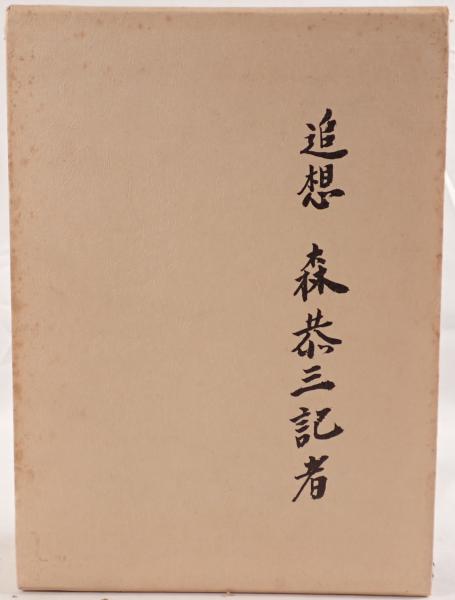 追想 森恭三記者